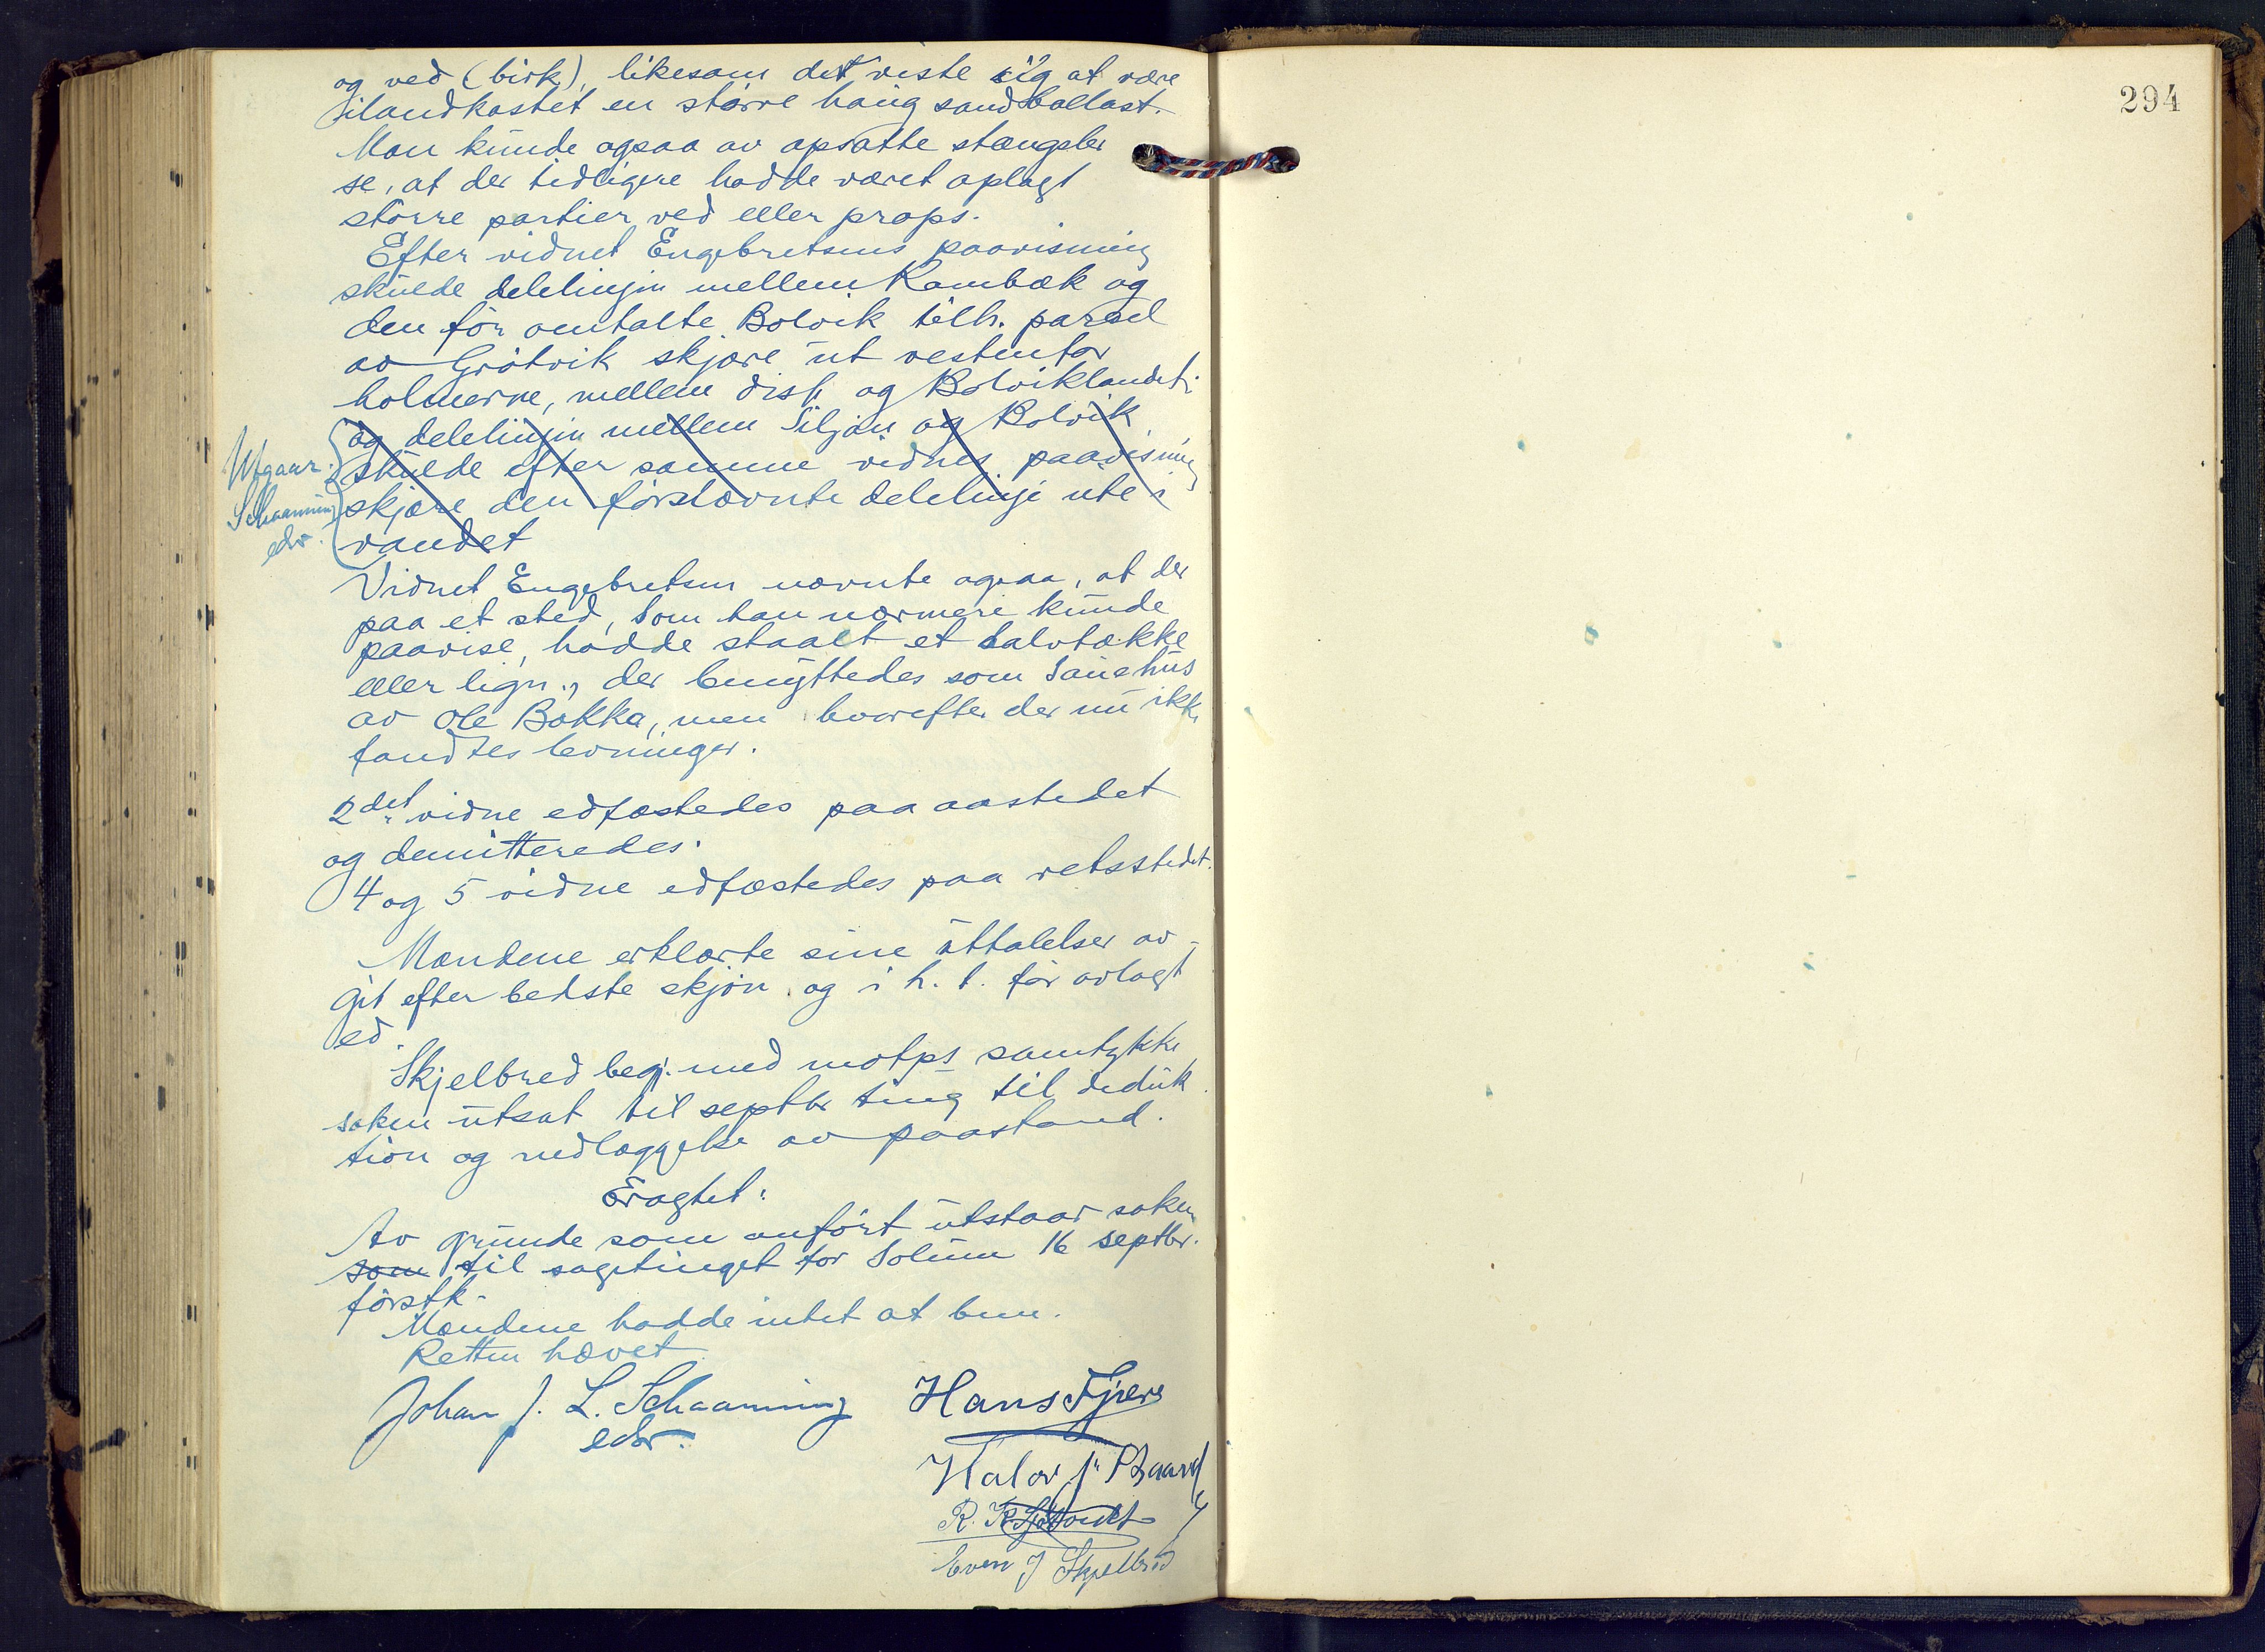 og ved (birk), likesom det viste sig at være
ilandkastet en større haug sandballast.
Man kunde ogsaa av opsatte stængsler
se, at der tidligere hadde været oplagt
større partier ved eller props.
Efter vidnet Engebretsens paavisning
skulde delelinjen mellem Rambæk og
den før omtalte Bolvik tilh. parsel
av Gråtvik skjære ut vestenfor
holmerne, mellem disse og Bolviklandet;
og delelinjen mellem Siljan og Bolvik
skulde efter samme vidnes paavisning
skjære den førstnævnte delelinje ute i
vandet
Utgaar.
Schaanning
edr.
Vidnet Engebretsen nævnte ogsaa, at der
paa et sted, som han nærmere kunde
paavise, hadde staaet et halvtække
eller lign., der benyttedes som sauehus
av Ole Bakka, men hvorefter der nu ikke
fandtes levninger.
2det vidne edfæstedes paa aastedet
og demitteredes.
4 og 5 vidne edfæstedes paa retsstedet.
Mændene erklærte sine uttalelser av-
git efter bedste skjøn og i h. t. før avlagt
ed.
Skjelbred beg. med motps samtykke
saken utsat til septbr ting til deduk
tion og nedlæggelse av paastand.
Eragtet:
Av grunde som anført utstaar saken
som til sagetinget for Solum 16 septbr.
førstk.
Mændene hadde intet at bem.
Retten hævet
Johan J. L. Schaanning
edr.
Hans Fjære
Halvor Baard
Even J Skjelbred
294